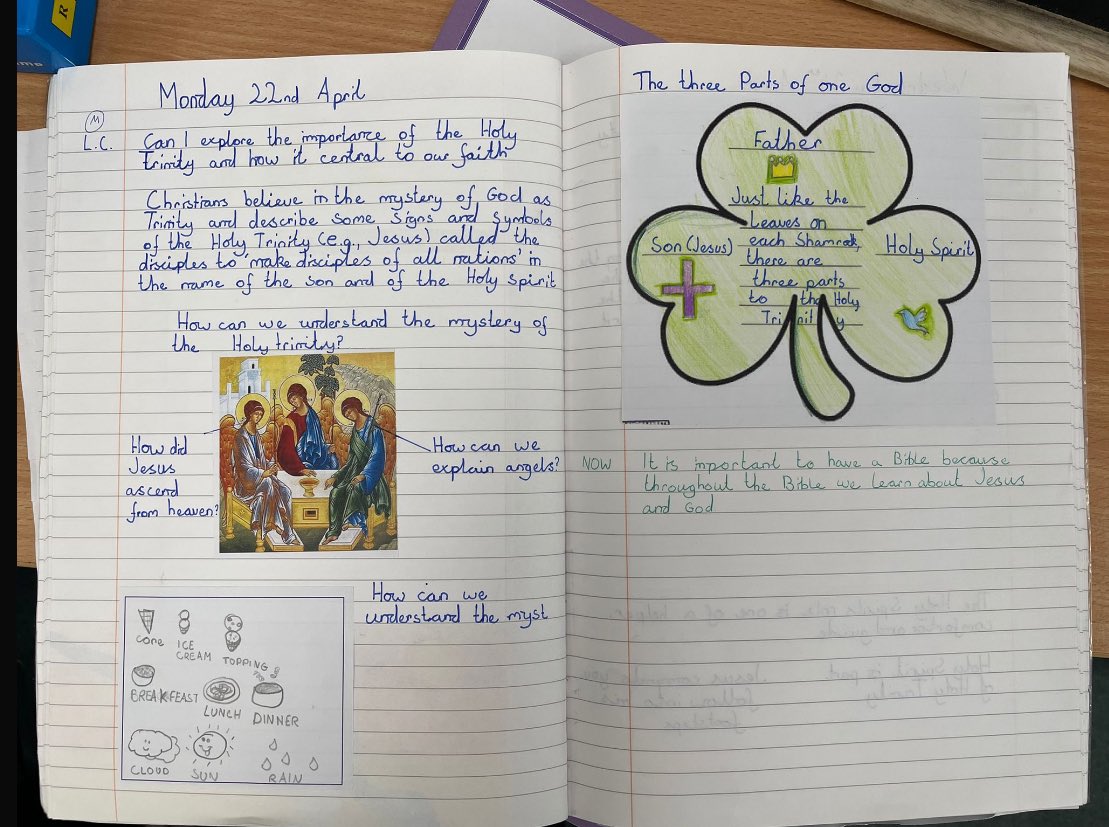 Monday 22nd April
M
L.C. Can I explore the importance of the Holy
Trinity and how it central to our faith
Christians believe in the mystery of God as
Trinity and describe some signs and symbols
of the Holy Trinity (e.g., Jesus) called the
disciples to 'make disciples of all nations' in
the name of the Son and of the Holy spirit
How can we understand the mystery of
the Holy trinity?
How did
Jesus
ascend
from heaven?
How can we
explain angels?
How can we
understand the myst
CONE
ICE
CREAM
TOPPING
BREAKFEAST
LUNCH
DINNER
CLOUD
SUN
RAIN
The three Parts of one God
Father
Just like the
Leaves on
Son (Jesus) each Shamrock, Holy Spirit
there are
three parts
to the Holy
Trinity
NOW It is important to have a Bible because
throughout the Bible we learn about Jesus
and God
R